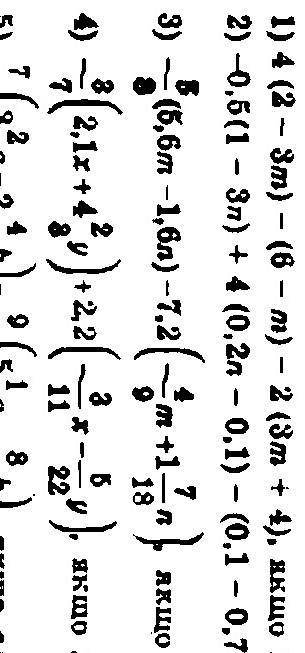 1) 4 (2 − 3m) − (6 − m) − 2 (3m + 4), якщо
2) −0,5(1 − 3n) + 4 (0,2n − 0,1) − (0,1 − 0,7
3) −5/8(5,6m −1,6n)−7,2(−4/9m +1 7/18n), якщо
4) −3/7(2,1x + 4 2/3y)+2,2(−3/11x − 5/22y), якщо
5)